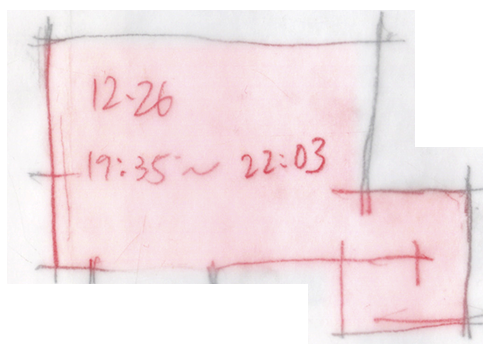 12.26
19:35~22:03